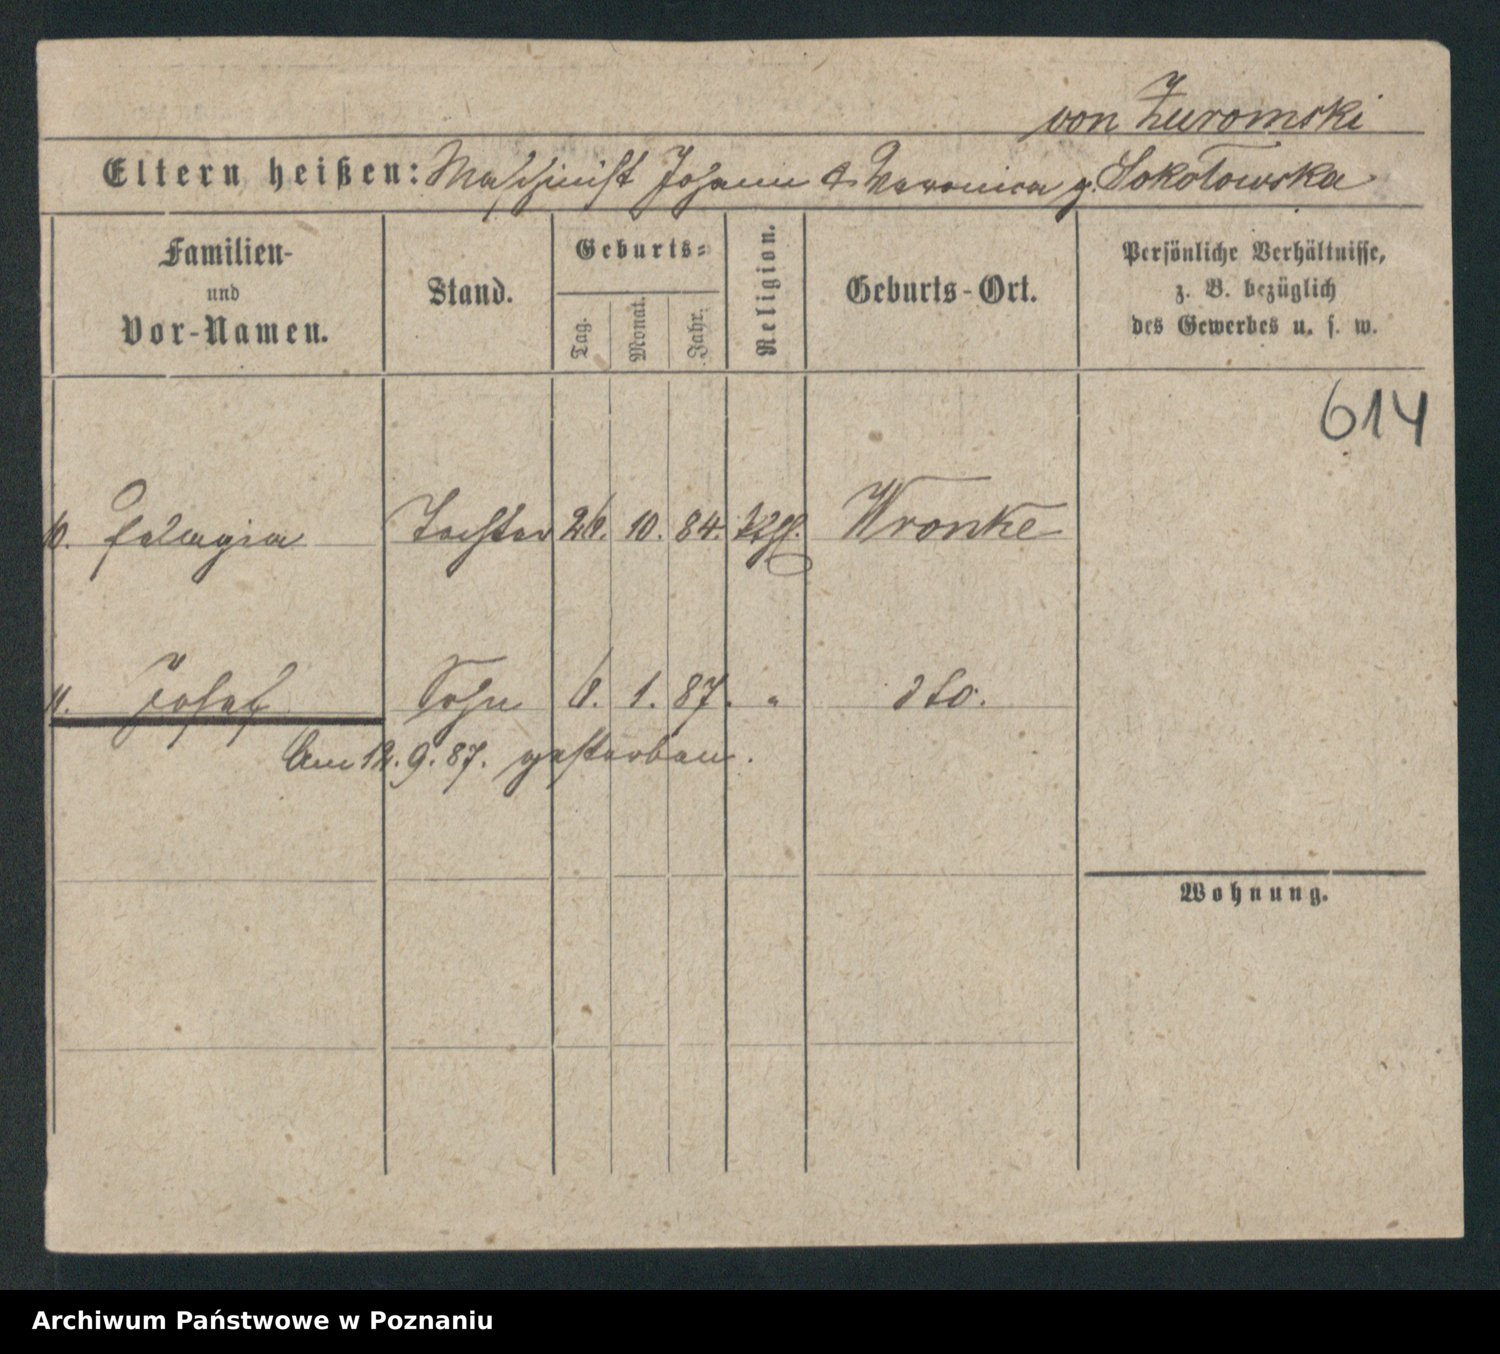 von Żuromski
Eltern heißen: Maschinist Johann & Veronica g. Sokołowska
Familien- und Vor-Namen.
Stand.
Geburts-
Tag.
Monat.
Jahr.
Religion.
Geburts-Ort.
Persönliche Verhältnisse,
z. B. bezüglich
des Gewerbes u. s. w.
614
10. Pelagia Tochter 10. 84. kthl. Wronke
11. Josef Sohn 8. 1. 87. " dto.
Am 12. 9. 87. gestorben.
Wohnung.
Archiwum Państwowe w Poznaniu